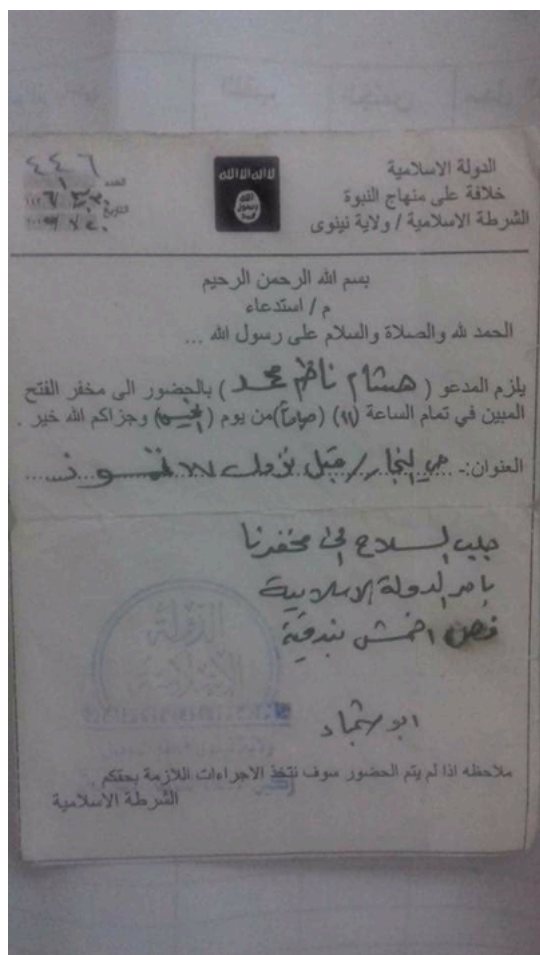 الدولة الاسلامية
خلافة على منهاج النبوة
الشرطة الاسلامية / ولاية نينوى
لا اله الا الله
الله
رسول
محمد
العدد
٤٤٦
التاريخ
بسم الله الرحمن الرحيم
م / استدعاء
الحمد لله والصلاة والسلام على رسول الله ...
يلزم المدعو ( هشام ناظم محمد ) بالحضور الى مخفر الفتح
المبين في تمام الساعة (١١) (صباحاً) من يوم (الخميس) وجزاكم الله خير .
العنوان:- حي النجار / قبل
جلب السلاح الى مخفرنا
بامر الدولة الاسلامية
بندقية
ابو
الدولة
الاسلامية
ملاحظه اذا لم يتم الحضور سوف نتخذ الاجراءات اللازمة بحقكم .
الشرطة الاسلامية